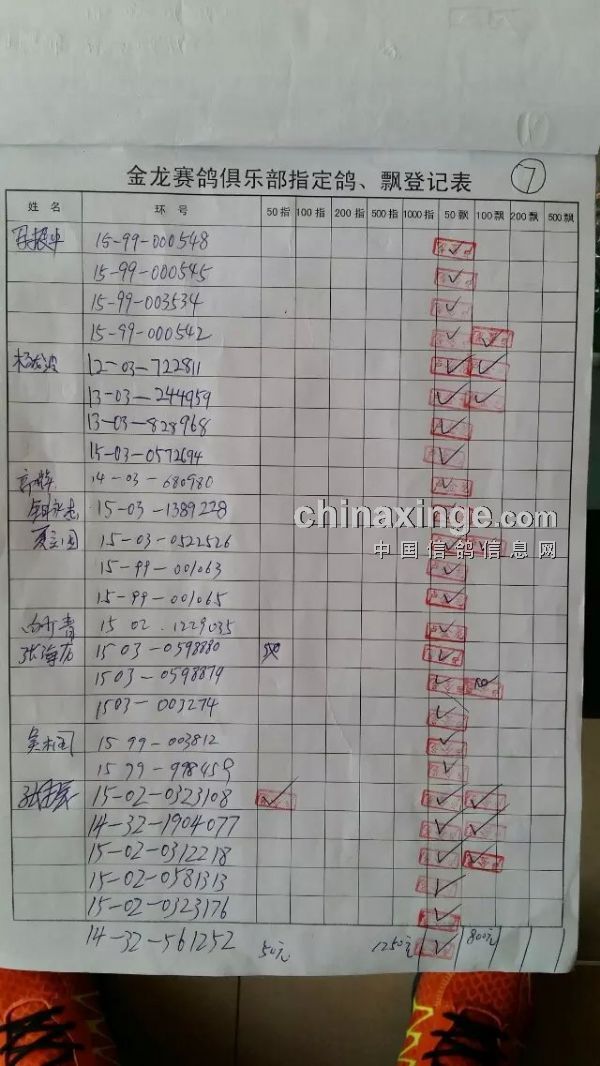 ⑦
金龙赛鸽俱乐部指定鸽、飘登记表
姓名 环号 50指 100指 200指 500指 1000指 50飘 100飘 200飘 500飘
15-99-000548
15-99-000545
15-99-003534
15-99-000542
12-03-722811
13-03-244959
13-03-828968
15-03-0572694
14-03-680980
15-03-1389228
chinaxinge.com
夏立国 15-03-0522526
中国信鸽信息网
15-99-001063
15-99-001065
15 02 . 1229035
张海 1503-0598880
1503-0598879
1503-003274
15 99-003812
15-02-0323108
14-32-1904077
15-02-0312218
15-02-0581313
15-02-0323176
14-32-561252 50元 1250元 800元